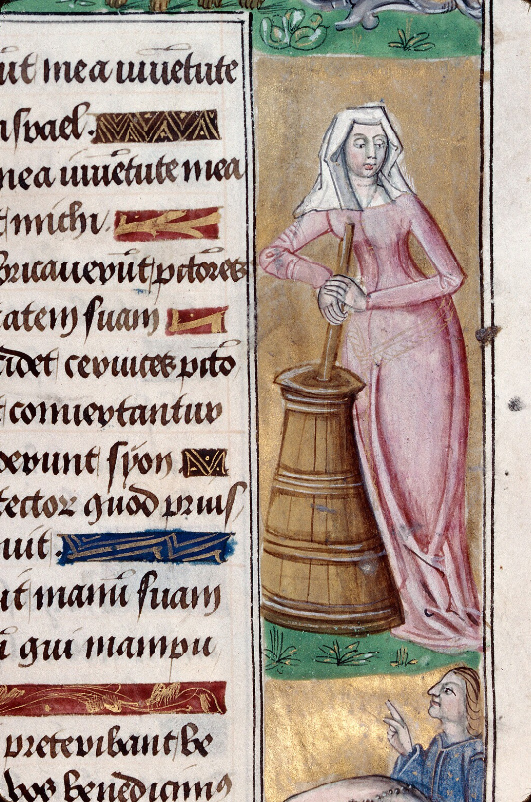 ut me a iuue͂tute
israel.
mea iuue͂tute mea
michi.
bricaueru͂t pctores
tatem suam
cidet ceruices pcto
t conuertantur
derunt syon
tector quod prius
uit.
it manu͂ suam
qui manipu
preteribant be
bos benedicim